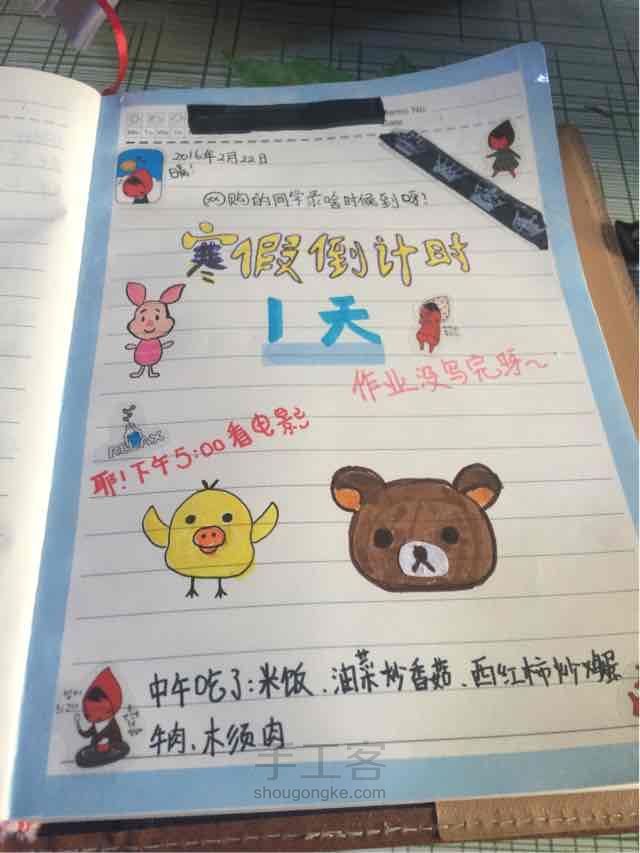 Memo No.
Mo Tu We Th
Date
2016年2月22日
晴!
网购的同学录啥时候到呀?
寒假倒计时
1天
作业没写完呀~
RELAX
耶!下午5:00看电影
中午吃了:米饭、油菜炒香菇、西红柿炒鸡蛋
牛肉、木须肉
手工客
shougongke.com